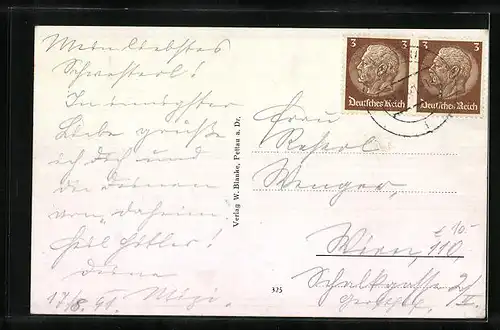 Mein liebstes
Schwesterl!
In innigster
Liebe grüße
ich Dich und
die Deinen
von daheim.
Heil Hitler!
Deine
17/8. 41. Mizi.
Verlag W. Blanke, Pettau a. Dr.
325
3
Deutsches Reich
3
Deutsches Reich
Frau
Reserl
Wenger,
Wien, 110,
2/
II.